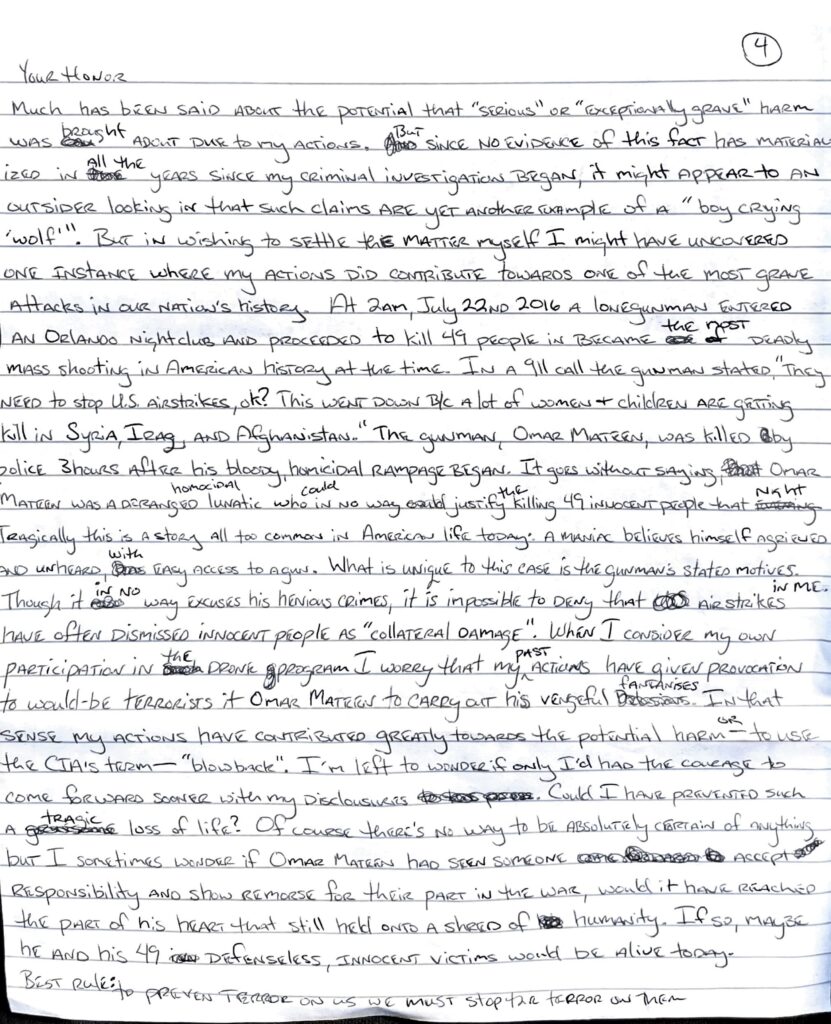 4
Your Honor
Much has been said about the potential that "serious" or "exceptionally grave" harm
was brought about due to my actions. But since no evidence of this fact has material
ized in all the years since my criminal investigation began, it might appear to an
outsider looking in that such claims are yet another example of a "boy crying
'wolf'". But in wishing to settle the matter myself I might have uncovered
one instance where my actions did contribute towards one of the most grave
attacks in our nation's history. At 2am, July 22nd 2016 a lonegunman entered
an Orlando nightclub and proceeded to kill 49 people in became the most deadly
mass shooting in American history at the time. In a 911 call the gunman stated, "They
need to stop U.S. airstrikes, ok? This went down b/c a lot of women + children are getting
kill in Syria, Iraq, and Afghanistan." The gunman, Omar Mateen, was killed by
police 3 hours after his bloody, homicidal rampage began. It goes without saying, Omar
Mateen was a deranged homocidal lunatic who in no way could justify the killing 49 innocent people that night
Tragically this is a story all too common in American life today: a maniac believes himself agrieved
and unheard, with easy access to a gun. What is unique to this case is the gunman's stated motives.
Though it in no way excuses his henious crimes, it is impossible to deny that airstrikes in M.E.
have often dismissed innocent people as "collateral damage". When I consider my own
participation in the drone program I worry that my past actions have given provocation
to would-be terrorists it Omar Mateen to carry out his vengeful fantanises. In that
sense my actions have contributed greatly towards the potential harm — or to use
the CIA's term — "blowback". I'm left to wonder if only I'd had the courage to
come forward sooner with my disclosures. Could I have prevented such
a tragic loss of life? Of course there's no way to be absolutely certain of anything
but I sometimes wonder if Omar Mateen had seen someone accept
responsibility and show remorse for their part in the war, would it have reached
the part of his heart that still held onto a shred of humanity. If so, maybe
he and his 49 defenseless, innocent victims would be alive today.
Best rule: to preven terror on us we must stop the terror on them